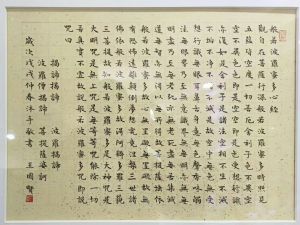 般若波羅蜜多心經
觀自在菩薩行深般若波羅蜜多時照見
五蘊皆空度一切苦厄舍利子色不異空
空不異色色即是空空即是色受想行識
亦復如是舍利子是諸法空相不生不滅
不垢不淨不增不減是故空中無色無受
想行識無眼耳鼻舌身意無色聲香味觸
法無眼界乃至無意識界無無明亦無無
明盡乃至無老死亦無老死盡無苦集滅
道無智亦無得以無所得故菩提薩埵依
般若波羅蜜多故心無罣礙無罣礙故無
有恐怖遠離顛倒夢想究竟涅槃三世諸
佛依般若波羅蜜多故得阿耨多羅三藐
三菩提故知般若波羅蜜多是大神咒是
大明咒是無上咒是無等等咒能除一切
苦真實不虛故說般若波羅蜜多咒即說
咒曰
揭諦揭諦 波羅揭諦
波羅僧揭諦 菩提薩婆訶
歲次戊戌仲春沐手敬書 王國賢